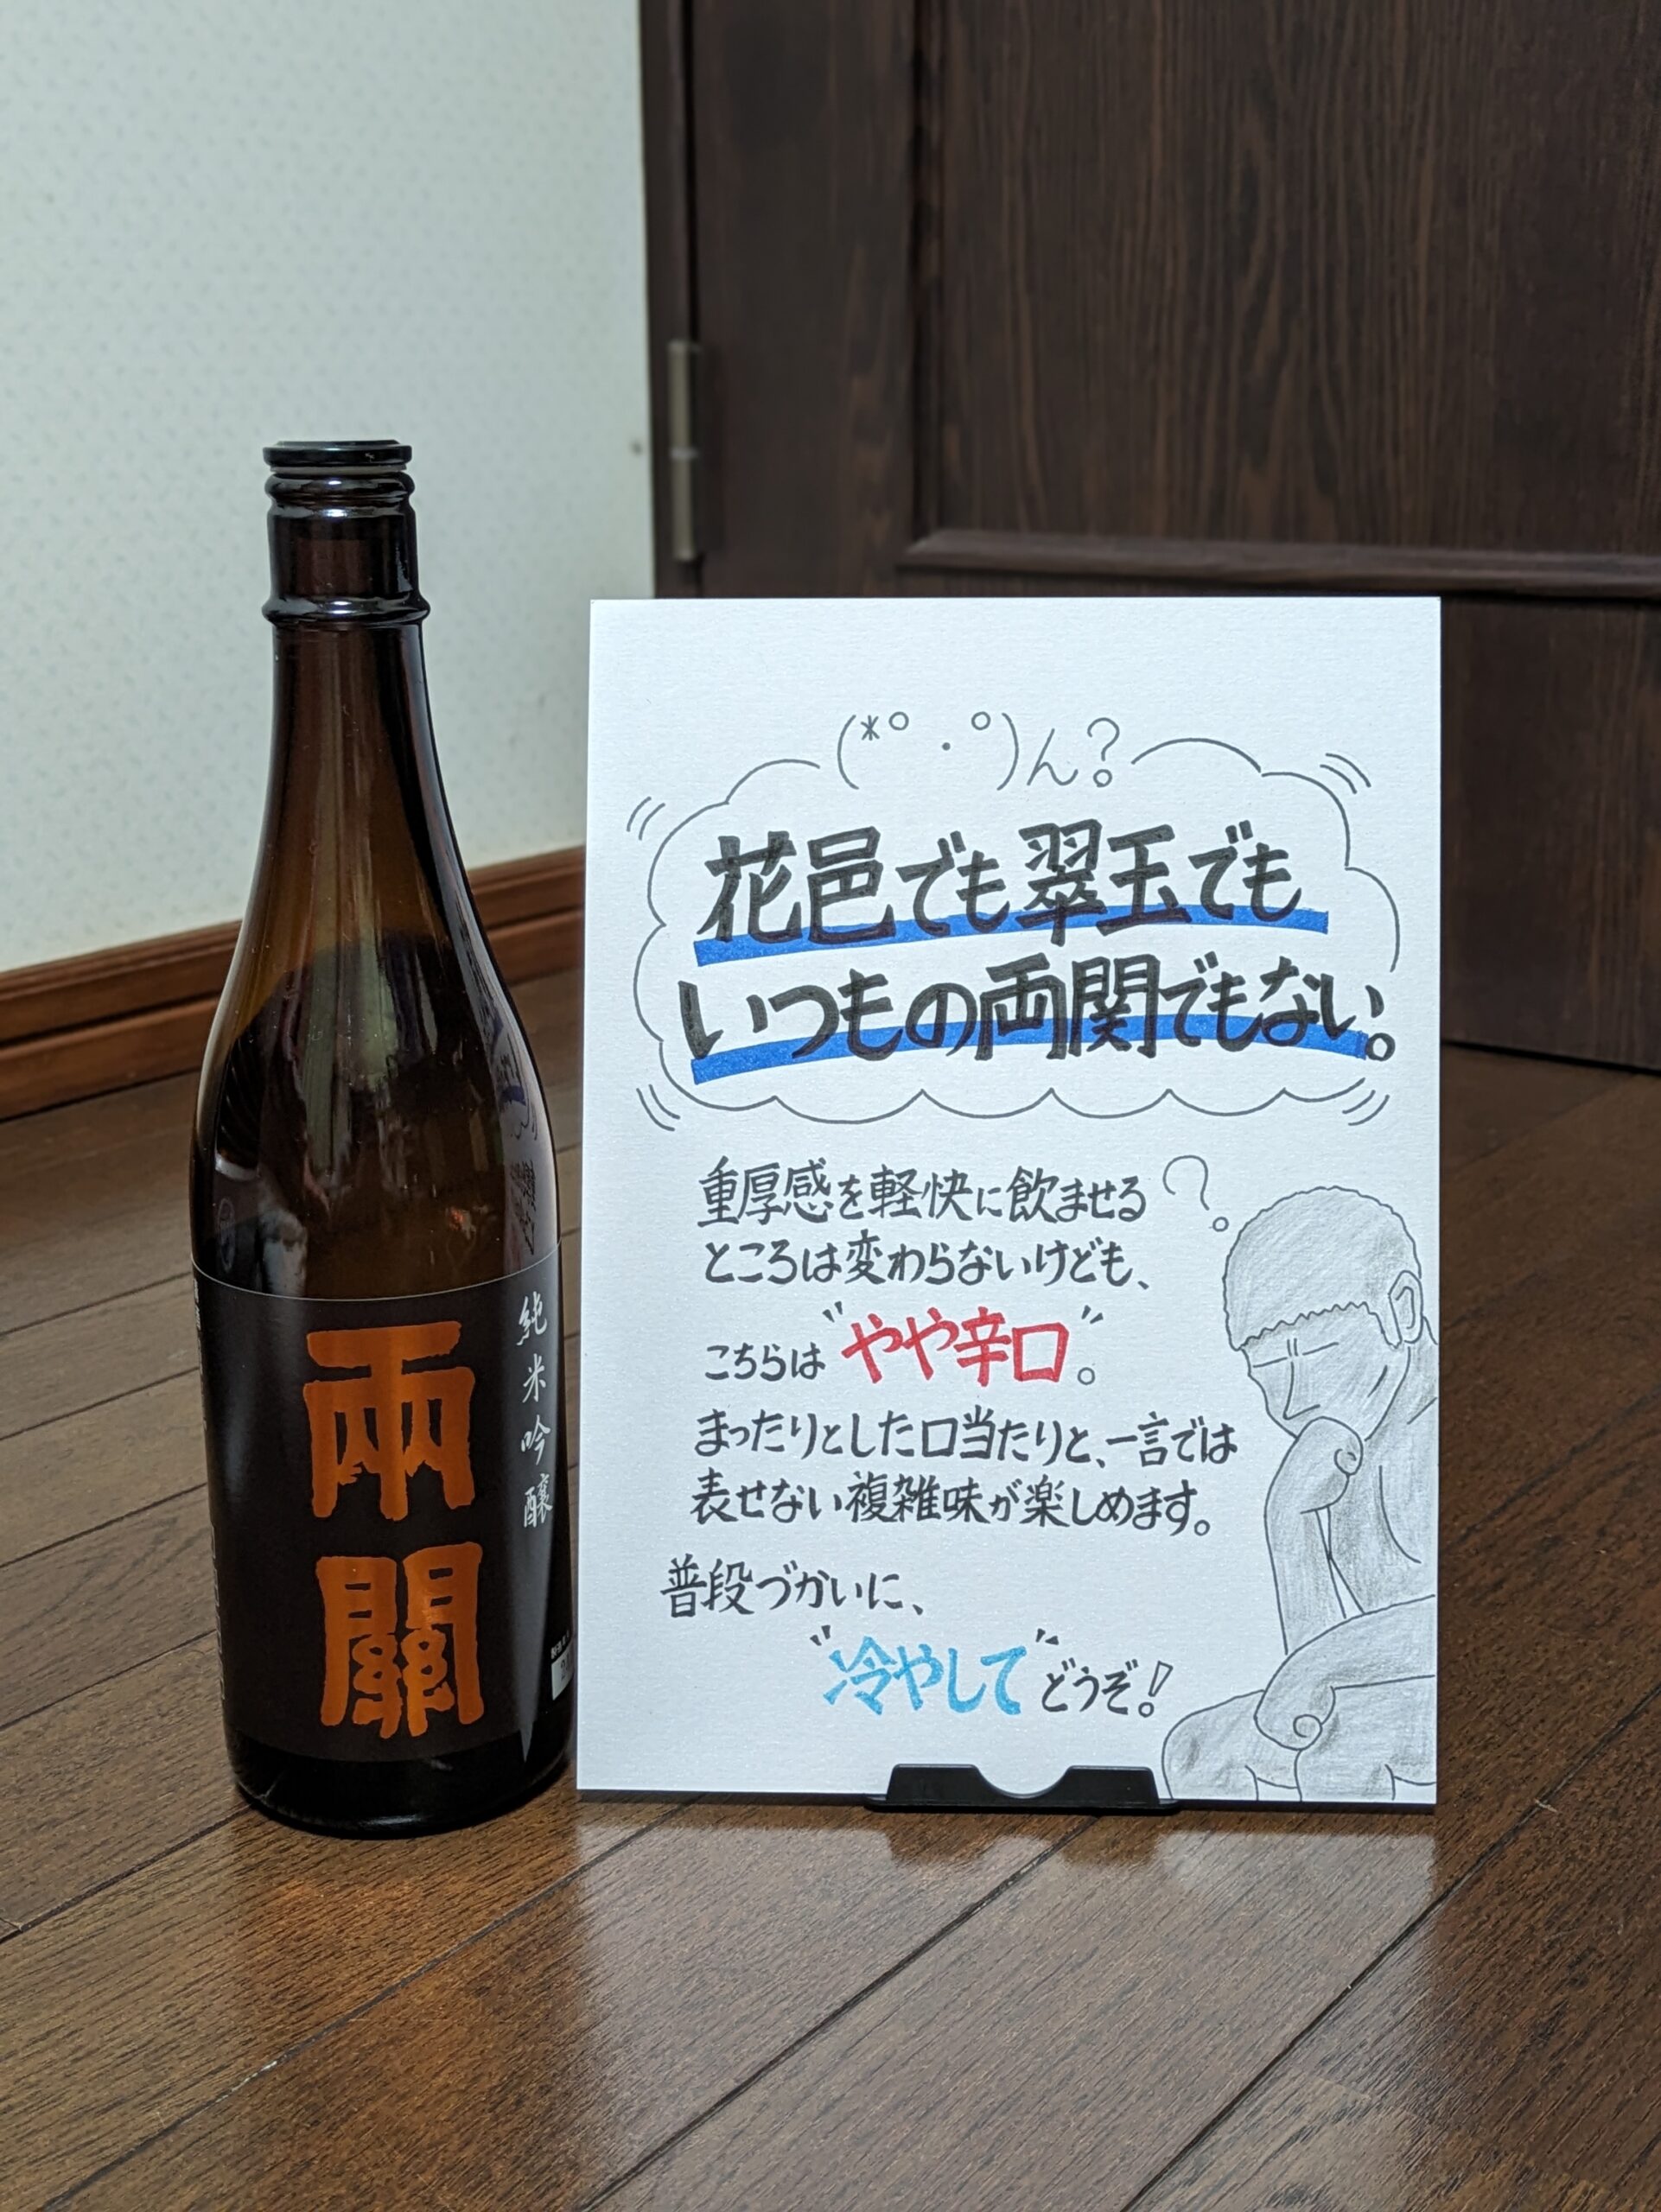 両關
純米吟醸
(*° ・°)ん?
花邑でも翠玉でも
いつもの両関でもない。
重厚感を軽快に飲ませる
ところは変わらないけども、
こちらは〝やや辛口〟。
まったりとした口当たりと、一言では
表せない複雑味が楽しめます。
普段づかいに、
〝冷やして〟どうぞ!
?